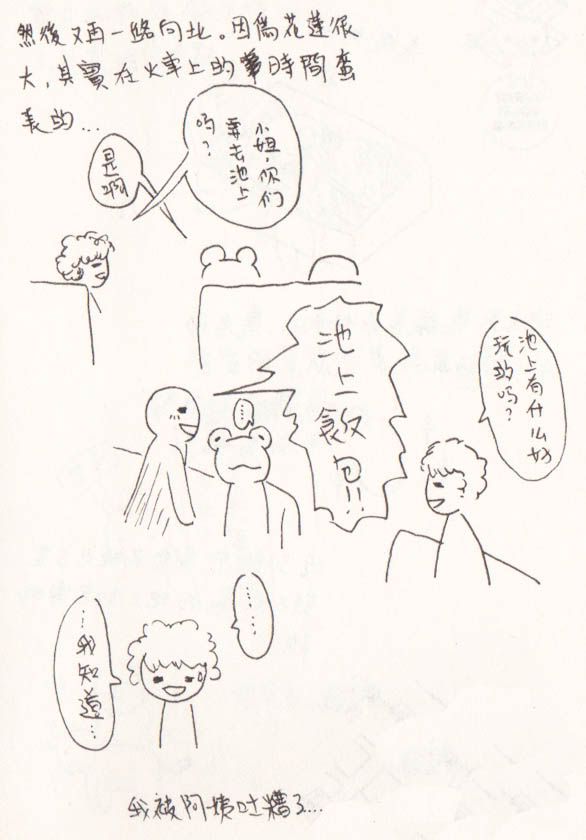 然後又再一路向北。因為花蓮很
大,其實在火車上的時間蠻
長的...
小姐,你们
要去池上
吗?
是啊
池上有什么好
玩的吗?
池上飯包!!
......
......
...我知道...
我被阿姨吐糟了...